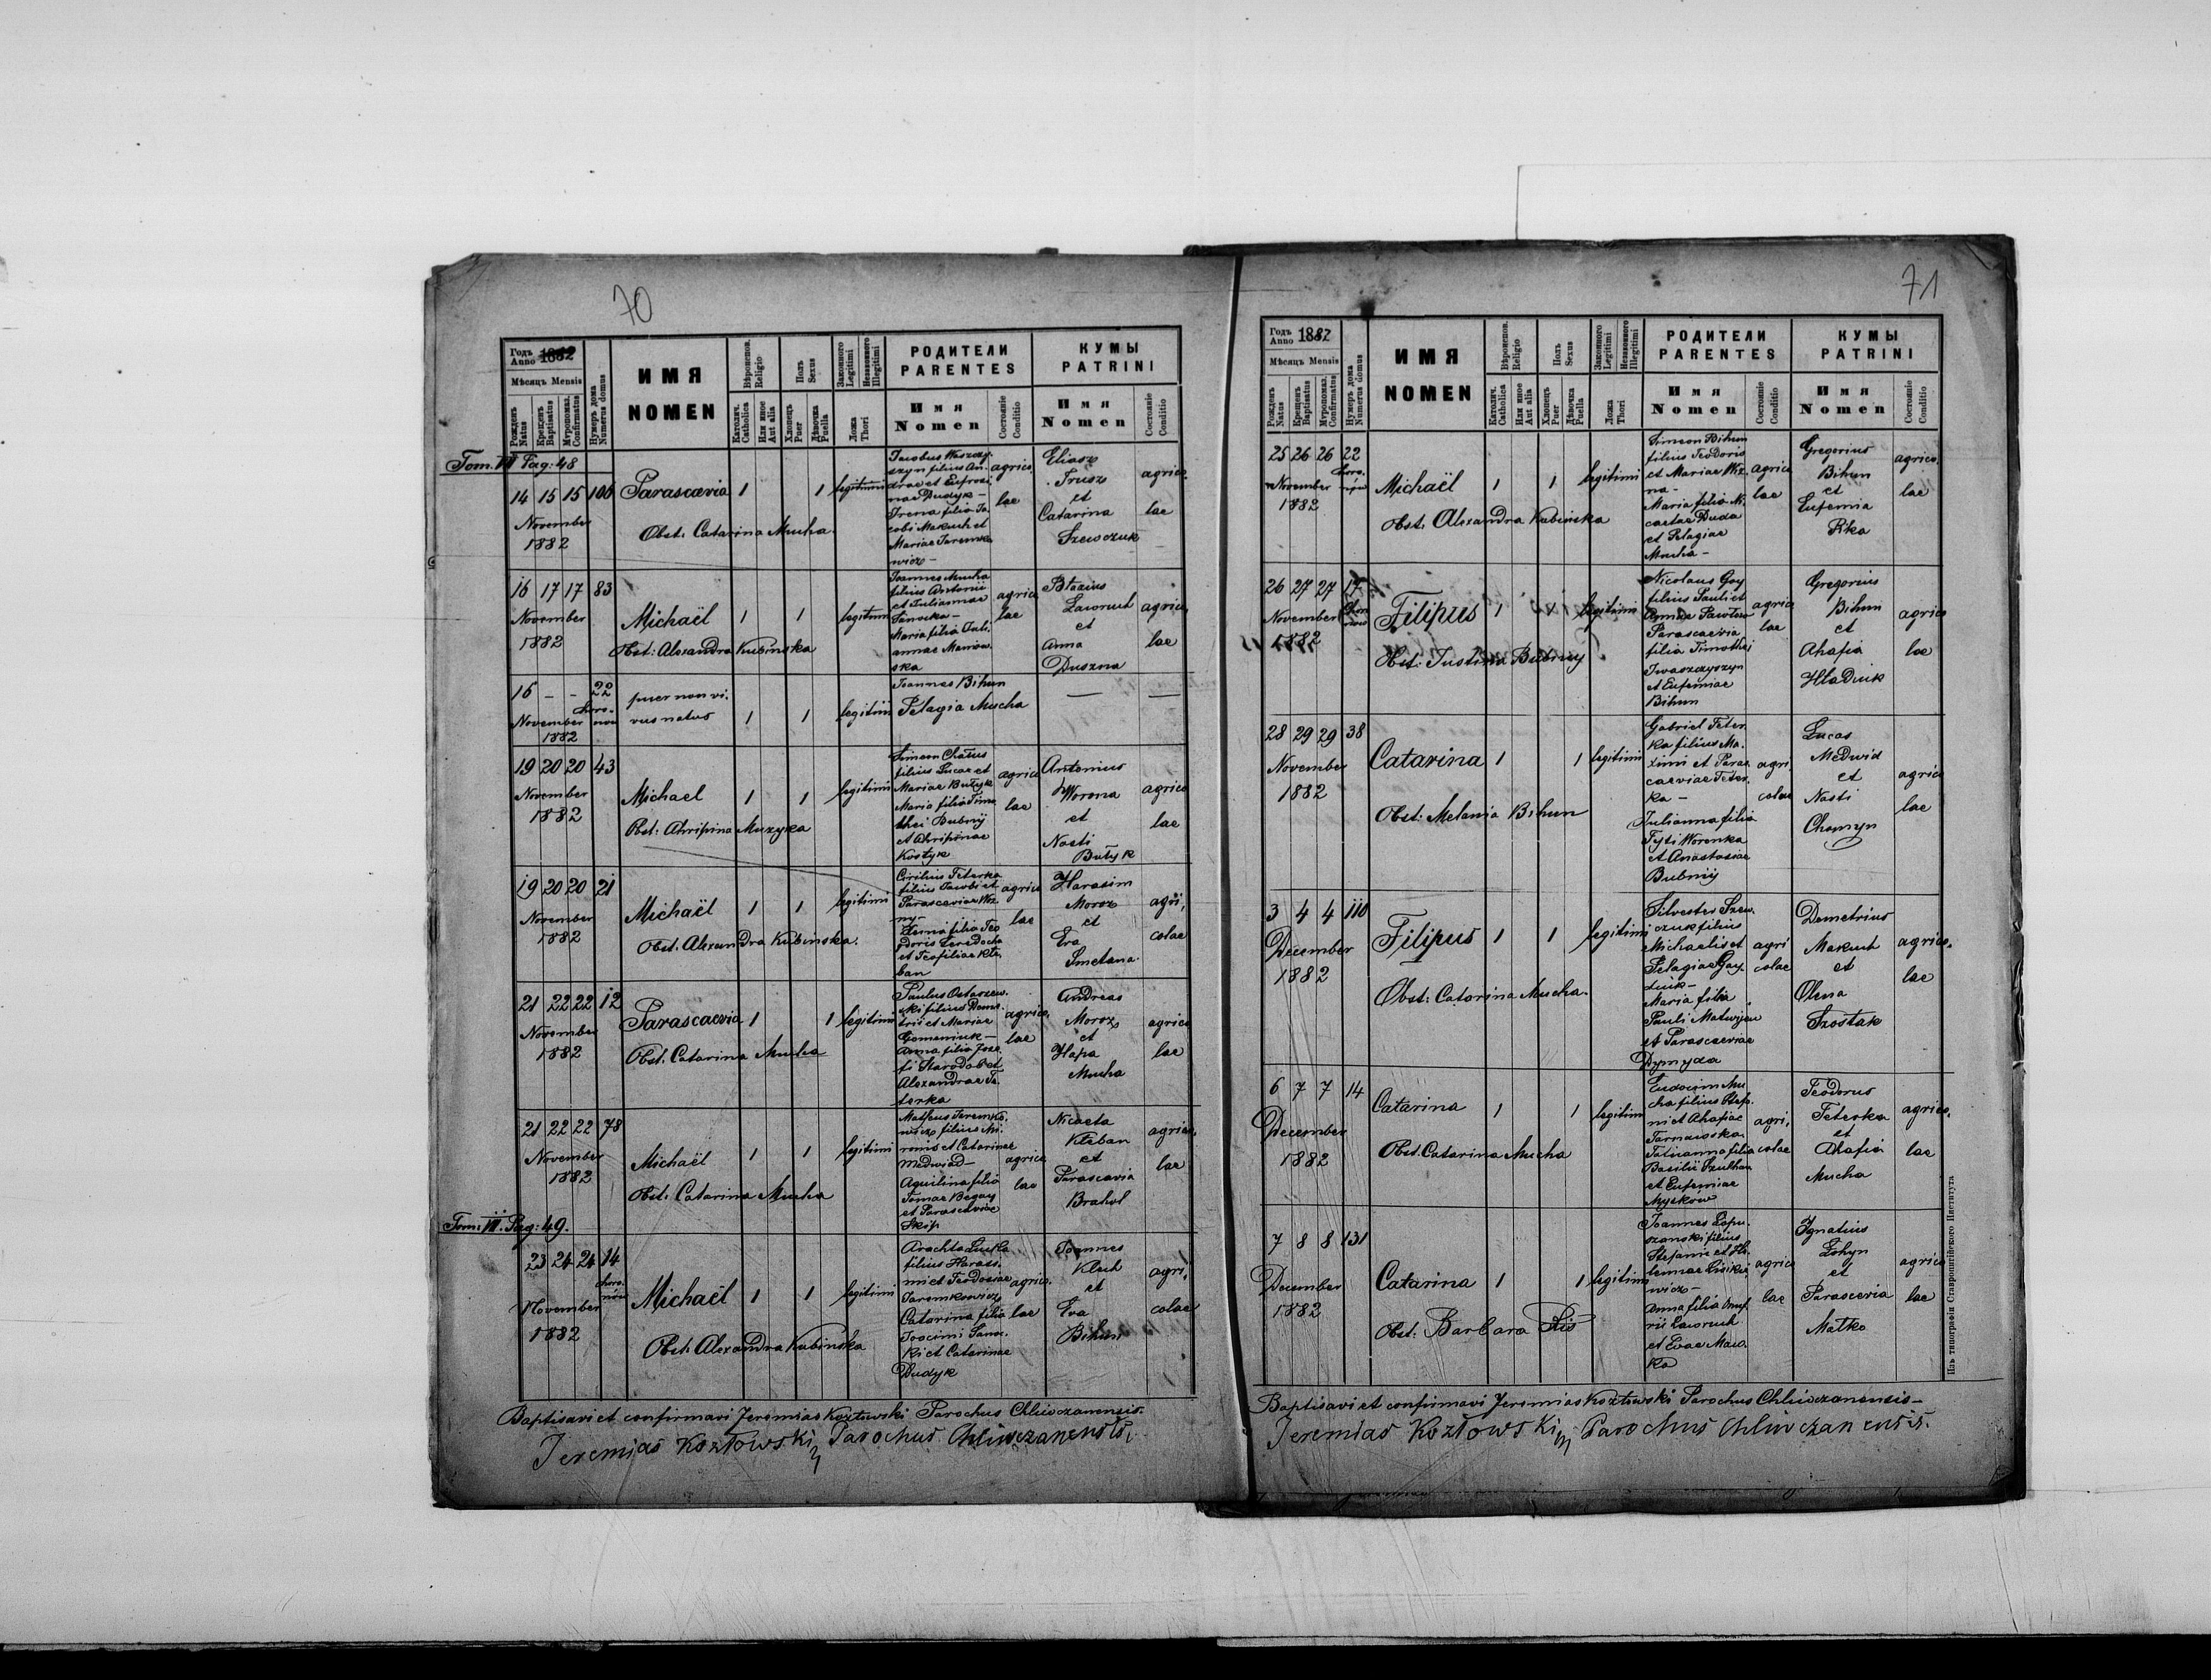 70
Годъ Anno 1882
Мѣсяцъ Mensis
Рожденъ Natus
Крещенъ Baptisatus
Мѵропомаз. Confirmatus
Нумеръ дома Numerus domus
ИМЯ
NOMEN
Вѣроиспов. Religio
Католич. Catholica
Или иное Aut alia
Полъ Sexus
Хлопець Puer
Дѣвочка Puella
Законного Legitimi
Незаконного Illegitimi
Ложа Thori
РОДИТЕЛИ
PARENTES
Имя
Nomen
Состояніе Conditio
КУМЫ
PATRINI
Имя
Nomen
Состояніе Conditio
Tom. VII Pag: 48
14 15 15 106
November
1882
Parascevia 1 1 legitimi
Obst: Catarina Mucha
Jacobus Waszczy-
szyn filius An-
drae et Eufrosi-
nae Dudyk –
Irena filia Ja-
cobi Makuch et
Mariae Jaremko-
wicz –
agrico
lae
Eliasz
Trusz
et
Catarina
Szewczuk
agrico
lae
16 17 17 83
November
1882
Michaël 1 1 legitimi
Obst: Alexandra Kubinska
Joannes Mucha
filius Antonii
et Juliannae
Sanocka –
Maria filia Juli-
annae
ska
agrico
lae
Błazius
Laworuch
et
Anna
Duszna
agrico
lae
16 – – 22
November
1882
puer non vi-
vus natus 1 1 legitimi
Joannes Bihun
Pelagia Mucha
19 20 20 43
November
1882
Michael 1 1 legitimi
Obst: Ahripina Muzyka
Simeon
filius Lucae et
Mariae Butyk
Maria filia Timo-
thei Bubnij
et Ahripinae
Kostyk
agrico
lae
Antonius
Worona
et
Nasti
Butyk
agrico
lae
19 20 20 21
November
1882
Michaël 1 1 legitimi
Obst. Alexandra Kubinska.
Cirilius Teterka
filius Jacobi et
Parasceviae Woz-
ny –
filia Teo-
doris
et Teofiliae Kle-
ban
agrico
lae
Harasim
Moroz
et
Eva
Smetana
agri,
colae
21 22 22 12
November
1882
Parascaevia 1 1 legitimi
Obst: Catarina Mucha
Paulus Ostaszew-
ski filius Deme-
trii et Mariae
Gomaniuk –
Anna filia Joze-
fi Starodob et
Alexandrae Te-
terka
agrico
lae
Andreas
Moroz
et
Hapa
Mucha
agrico
lae
21 22 22 78
November
1882
Michaël 1 1 legitimi
Obst: Catarina Mucha
Matheus Jeremko-
wicz filius Mi-
ronis et Catarinae
Medwiad –
Aquilina filia
Tomae Begay
et Parasceviae
Skop
agrico
lae
Nicaeta
Kleban
et
Parascavia
Brahol
agrico
lae
Tom: VII. Pag: 49.
23 24 24 14
November
1882
Michaël 1 1 legitimi
Obst: Alexandra Kubinska
filius Harasi-
mi et Teodosiae
Jaremkowicz
Catarina filia
Joacimi Sano-
ki et Catarinae
Dudyk
agrico
lae
Joannes
Klech
et
Eva
Bihun
agri,
colae
Baptisavi et confirmavi Jeremias Kozłowski Parochus Chliwczanensis.
Jeremias Kozłowski Parochus Chliwczanensis.
71
Годъ Anno 1882
Мѣсяцъ Mensis
Рожденъ Natus
Крещенъ Baptisatus
Мѵропомаз. Confirmatus
Нумеръ дома Numerus domus
ИМЯ
NOMEN
Вѣроиспов. Religio
Католич. Catholica
Или иное Aut alia
Полъ Sexus
Хлопець Puer
Дѣвочка Puella
Законного Legitimi
Незаконного Illegitimi
Ложа Thori
РОДИТЕЛИ
PARENTES
Имя
Nomen
Состояніе Conditio
КУМЫ
PATRINI
Имя
Nomen
Состояніе Conditio
25 26 26 22
November
1882
Michaël 1 1 legitimi
Obst: Alexandra Kubinska
Simeon Bihun
filius Teodoris
et Mariae Woz-
na –
Maria filia Ni-
caetae Duda
et Pelagiae
Mucha –
agrico
lae
Gregorius
Bihun
et
Eufemia
Pika
agrico
lae
26 27 27 17
November
1882
Filipus 1 legitimi
Obst: Justina Bubnij
Nicolaus Goy
filius Pauli et
Annae Pawlow
Parascaevia
filia Timothei
Iwaszczyszyn
et Eufemiae
Bihun
agrico
lae
Gregorius
Bihun
et
Ahafia
Hladiuk
agrico
lae
28 29 29 38
November
1882
Catarina 1 1 legitimi
Obst: Melania Bihun
Gabriel Teter-
ka filius Ma-
ximi et Paras-
caeviae Teter-
ka –
Julianna filia
Tyti Worenka
et Anastasiae
Bubnij
agri,
colae
Lucas
Medwid
et
Nasti
Chomyn
agrico
lae
3 4 4 110
December
1882
Filipus 1 1 legitimi
Obst: Catarina Mucha
Silvester Szew-
czuk filius
Michaelis et
Pelagiae Gay-
duk –
Maria filia
Pauli Matwijew
et Parascaeviae
Dymyda
agri
colae
Demetrius
Makuch
et
Olena
Szostak
agrico.
lae
6 7 7 14
December
1882
Catarina 1 1 legitimi
Obst. Catarina Mucha
Eudocim Mu-
cha filius Stefa-
ni et Ahafiae
Tarnawska
Tatianna filia
Basilii Szulhan
et Eufemiae
Myskow
agri,
colae
Teodorus
Teterka
et
Ahafia
Mucha
agrico.
lae
7 8 8 131
December
1882
Catarina 1 1 legitimi
Obst: Barbara Lis
Joannes Lopu-
szanski filius
Stefanie et He-
lennae Lisikie-
wicz –
Anna filia Onuf-
rii Laworuch
et Evae Maw-
ka
agrico
lae
Ignatius
Lohyn
et
Parascevia
Matko
agrico
lae
Baptisavi et confirmavi Jeremias Kozłowski Parochus Chliwczanensis –
Jeremias Kozłowski Parochus Chliwczanensis.
Изъ типографіи Ставропигійского Института